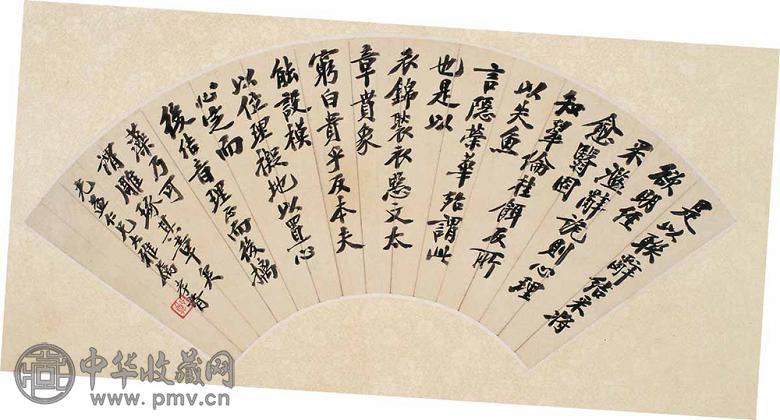 是以聯辭結采將
欲明經
采濫辭詭則心理
愈翳固
知翠綸桂餌反所
以失魚
言隱榮華殆謂此
也是以
衣錦褧衣惡文太
章賁象
窮白貴乎反本夫
能設模
以位理擬地以置心
心定而
後結音理正而後摛
藻乃可
謂雕琢其章矣
仁兄大雅屬 孝胥
中华收藏网
www.pmv.cn